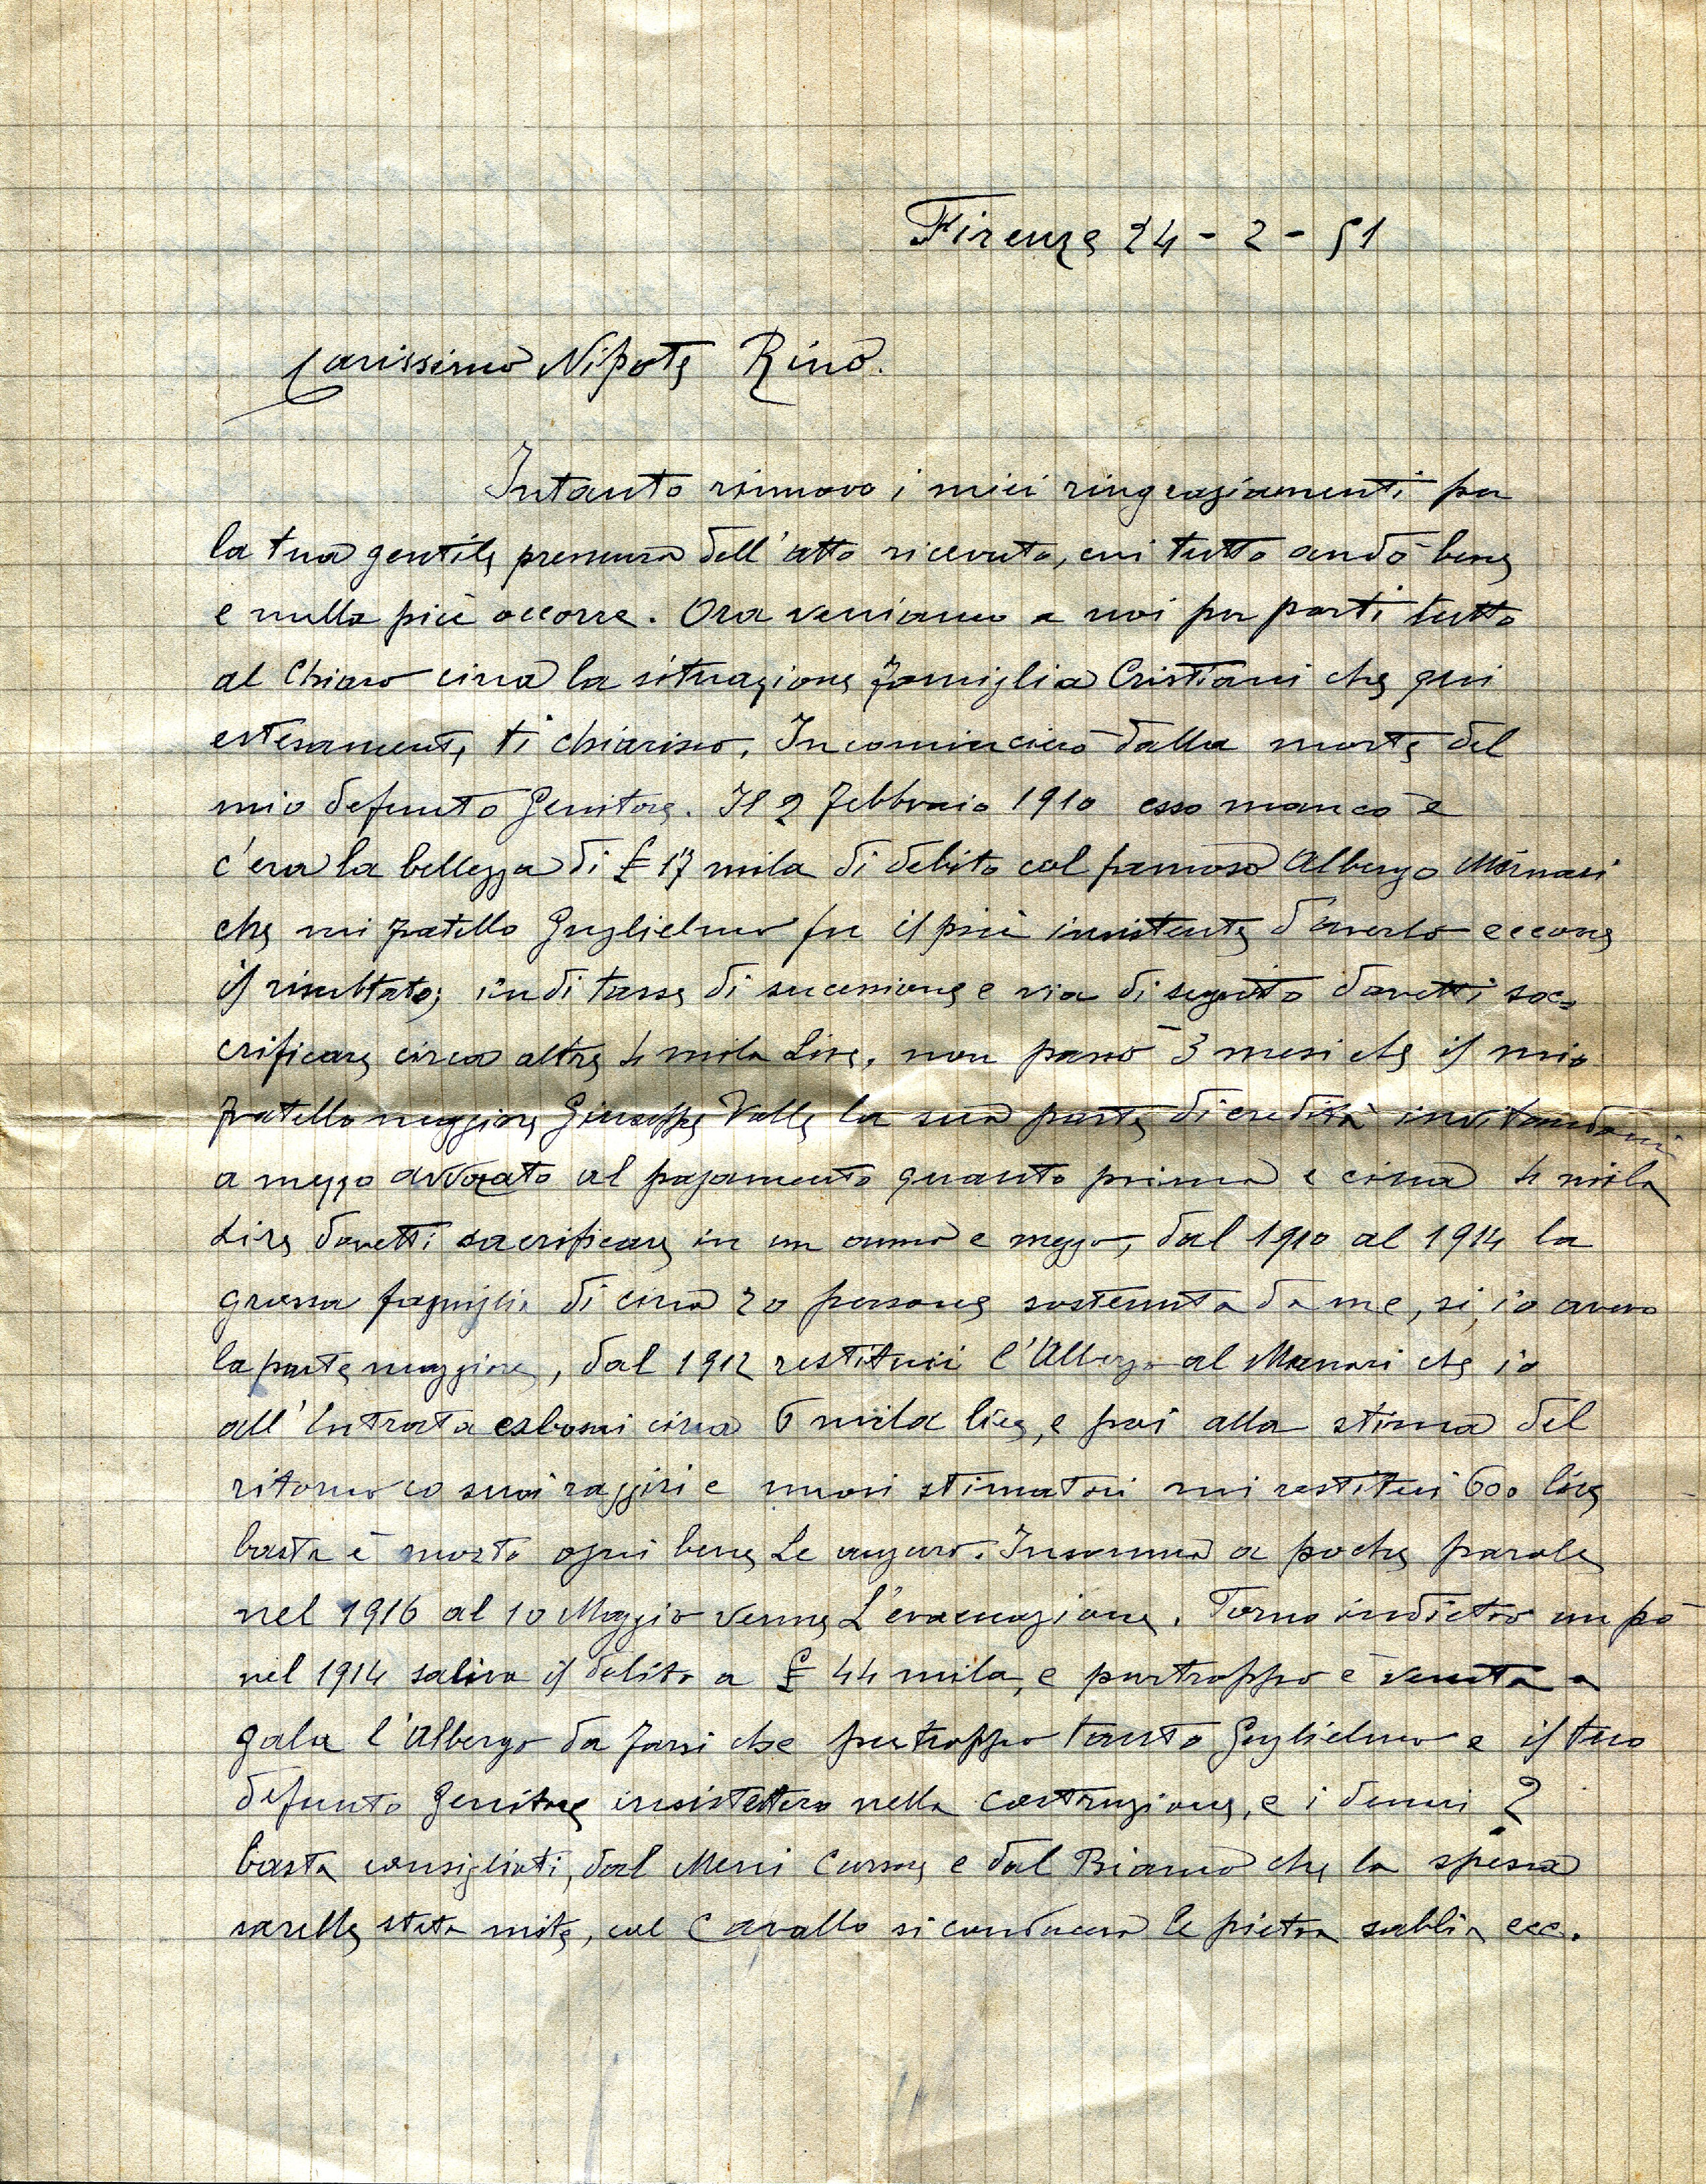 Firenze 24 - 2 - 51
Carissimo Nipote Rino.
Intanto rinnovo i miei ringraziamenti per
la tua gentile premura dell'atto ricevuto, cui tutto andò bene
e nulla più occorre. Ora veniamo a noi per parti tutto
al Chiaro circa la situazione famiglia Cristiani che qui
estesamente ti chiarisco, Incomincierò dalla morte del
mio defunto Genitore. Il 2 Febbraio 1910 esso mancò e
c'era la bellezza di £ 17 mila di debito col famoso Albergo
che mi fratello Guglielmo fu il più insistente d'averlo eccone
il risultato; indi tasse di sucessione e via di seguito dovetti sac=
crificare circa altre 4 mila Lire, non passò 3 mesi che il mio
fratello maggiore Giuseppe Valle la sua parte di eredità invitandomi
a mezzo avvocato al pagamento quanto prima e circa 4 mila
Lire dovetti sacrificare in un anno e mezzo, dal 1910 al 1914 la
grossa famiglia di circa 20 persone sostenuta da me, si, io avevo
la parte maggiore, dal 1912 restituii l'Albergo al che io
all'Entrata esborsai circa 6 mila lire, e poi alla stima del
ritorno co suoi raggiri e nuovi stimatori mi restitui 600 lire
basta è morto ogni bene Le auguro. Insomma a poche parole
nel 1916 al 10 Maggio venne L'evacuazione. Torno indietro un pò
nel 1914 saliva il debito a £ 44 mila, e purtroppo è venuta a
gala l'Albergo da farsi che purtroppo tanto Guglielmo e il tuo
defunto Genitore insistettero nella costruzione, e i denari ?
basta consigliati, dal e dal che la spesa
sarebbe stata mite, col Cavallo si conduceva le pietra sabbia ecc.